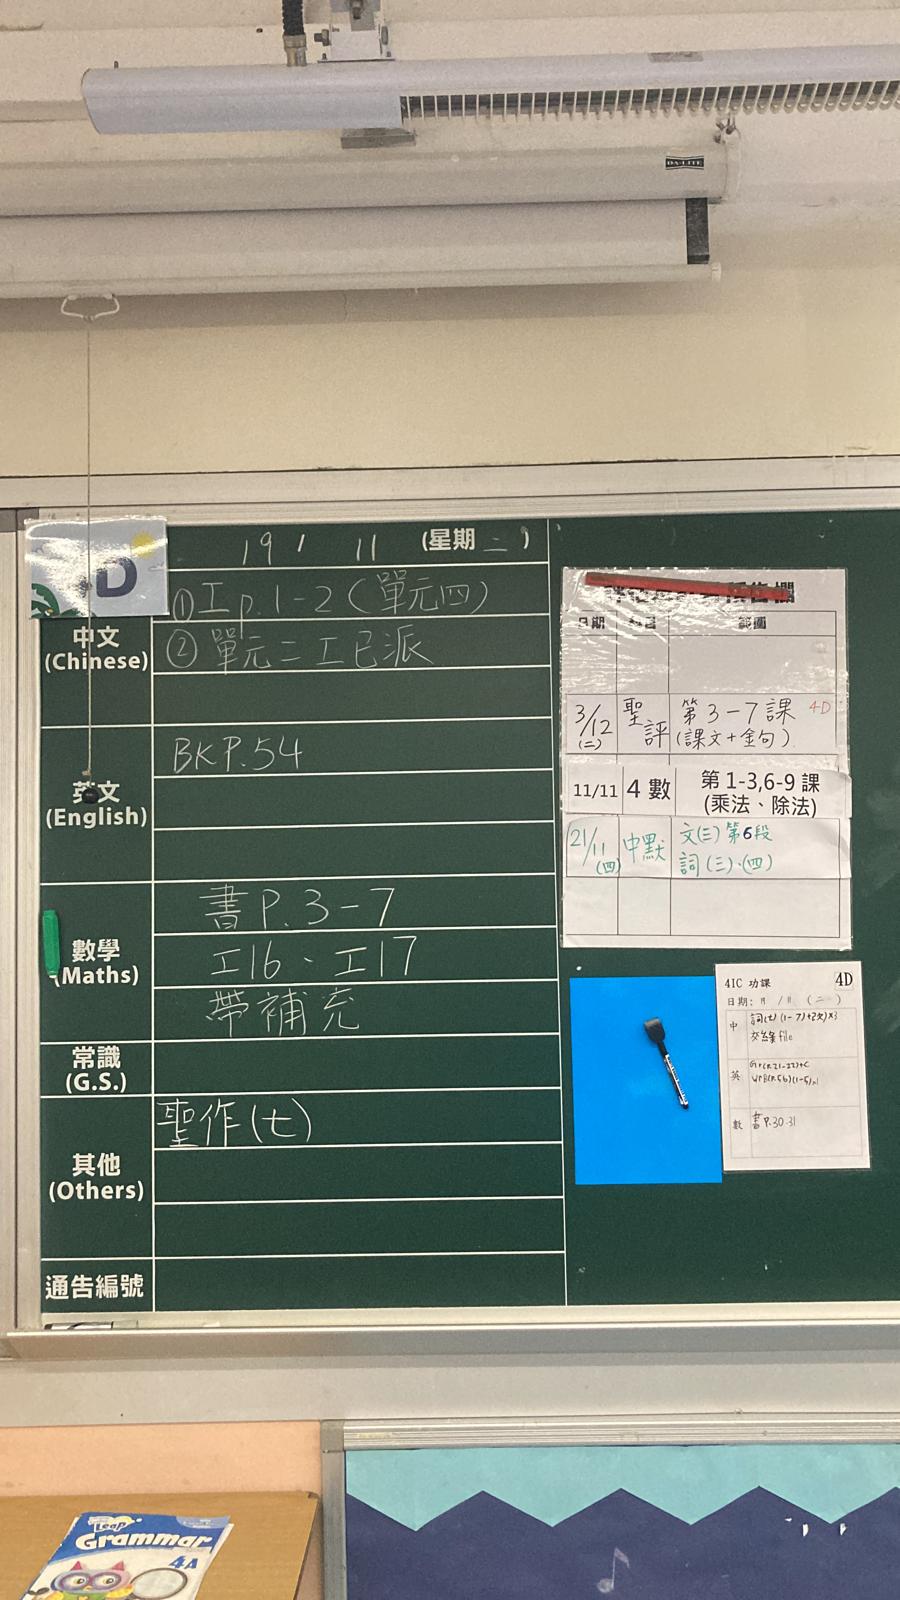 DA-LITE
D
19 / 11 (星期二)
中文
(Chinese)
①工p.1-2(單元四)
②單元二工已派
英文
(English)
BK P.54
數學
(Maths)
書P.3-7
工16、工17
帶補充
常識
(G.S.)
其他
(Others)
聖作(七)
通告編號
日期 科目 範圍
3/12 (二) 聖評 第3-7課 4D
(課文+金句)
11/11 4數 第1-3,6-9課
(乘法、除法)
21/11 (四) 中默 文(三)第6段
詞(三)、(四)
4IC 功課 4D
日期: 11 / 11 (二)
中
英
數 書P.30-31
Leap
Grammar
4A